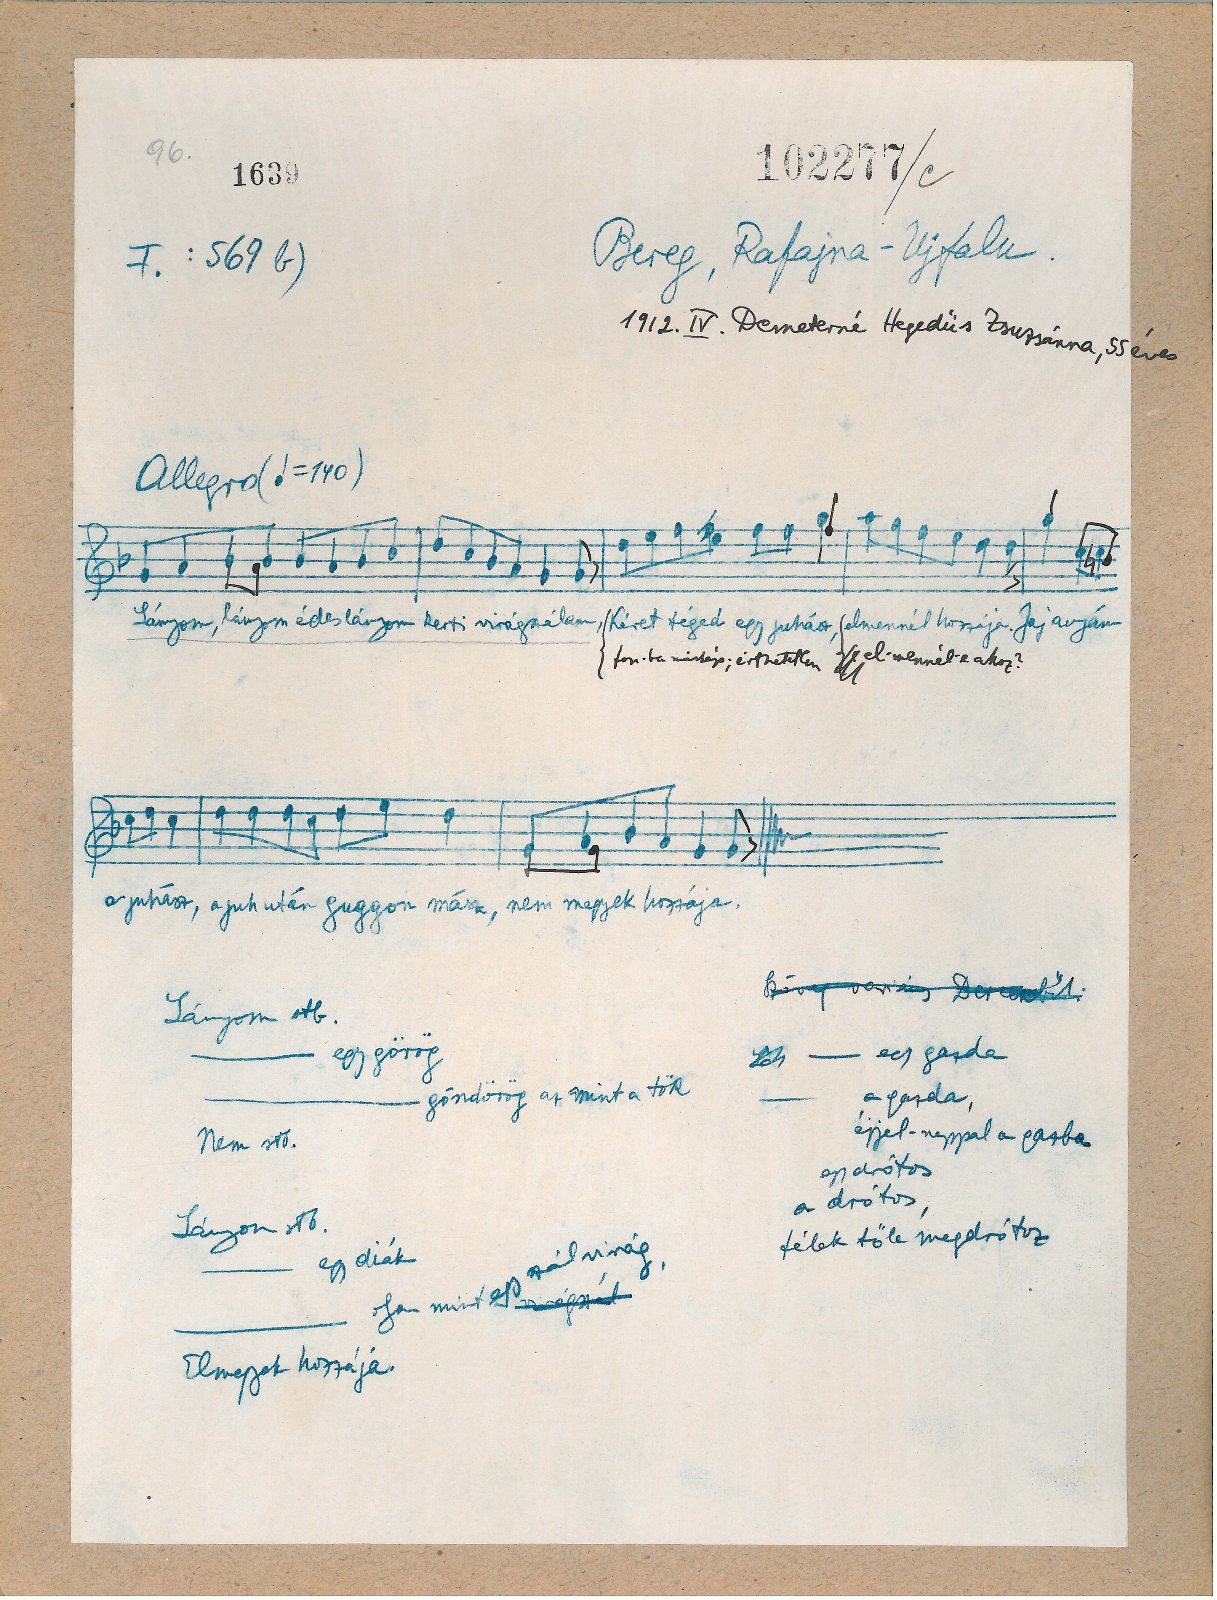 96.
1639
102277/c
I. : 569 b)
Bereg, Rafajna-Ujfalu.
1912. IV. Demeterné Hegedüs Zsuzsánna, 55 éves
Allegro (♩=140)
Lányom, lányom édes lányom kerti virágszálam, Kéret téged egy juhász, elmennél hozzája. Jaj anyám
érthetetlen el-mennél-e ahoz?
a juhász, a juh után guggon mász, nem megyek hozzája.
Lányom stb.
egy görög
göndörög az mint a tök
Nem stb.
Lányom stb.
egy diák
szál virág,
olyan mint egy virágszál
Elmegyek hozzája.
egy gazda
a gazda,
éjjel-nappal a gazba
egy drótos
a drótos,
félek tőle megdrótoz